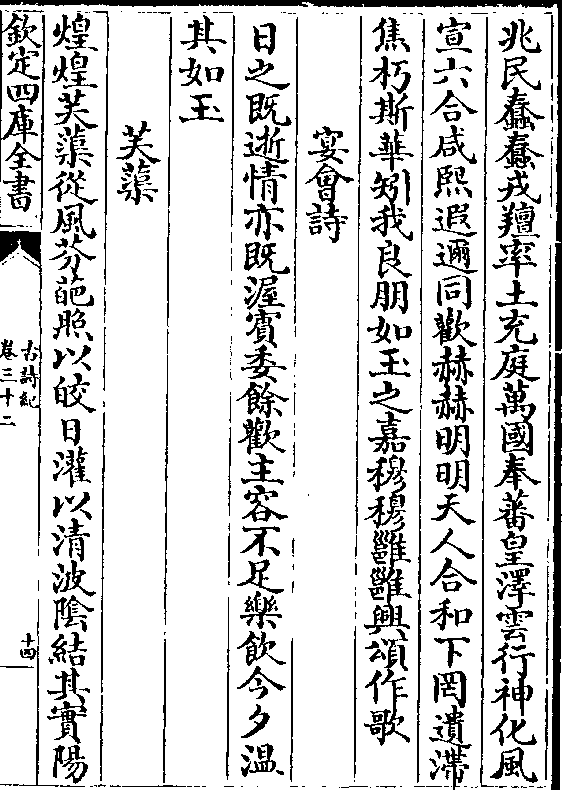 兆民蠢蠢戎羶率土充庭萬國奉蕃皇澤雲行神化風
宣六合咸熙遐邇同歡赫赫明明天人合和下罔遺滯
焦朽斯華矧我良朋如玉之嘉穆穆雝雝興頌作歌
宴會詩
日之既逝情亦既渥賓委餘歡主容不足樂飲今夕溫
其如玉
芙蕖
煌煌芙蕖從風芬葩照以皎日灌以清波陰結其實陽
欽定四庫全書
古詩紀
卷三十二
十四